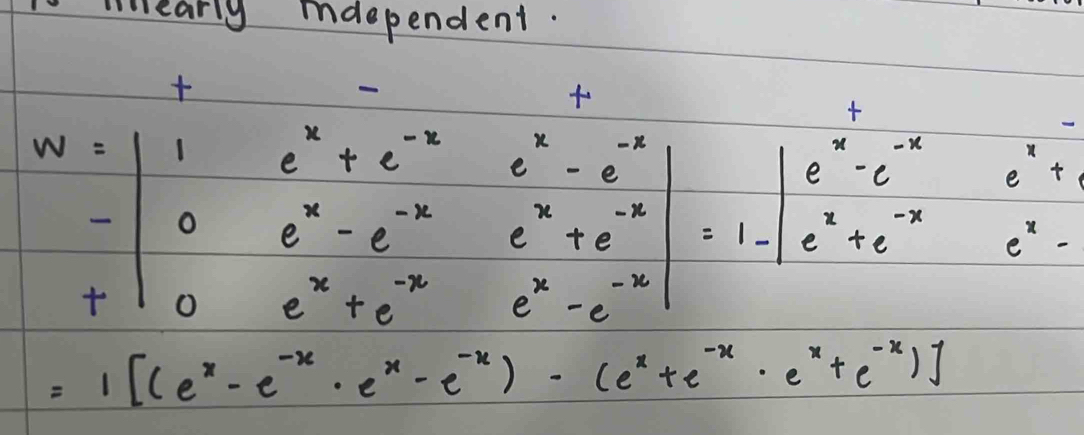 linearly independent.
+ - + + -
W = | 1 e^x + e^-x e^x - e^-x | | e^x - e^-x e^x +
- | 0 e^x - e^-x e^x + e^-x | = 1 - | e^x + e^-x e^x -
+ | 0 e^x + e^-x e^x - e^-x |
= 1 [(e^x - e^-x · e^x - e^-x) - (e^x + e^-x · e^x + e^-x)]